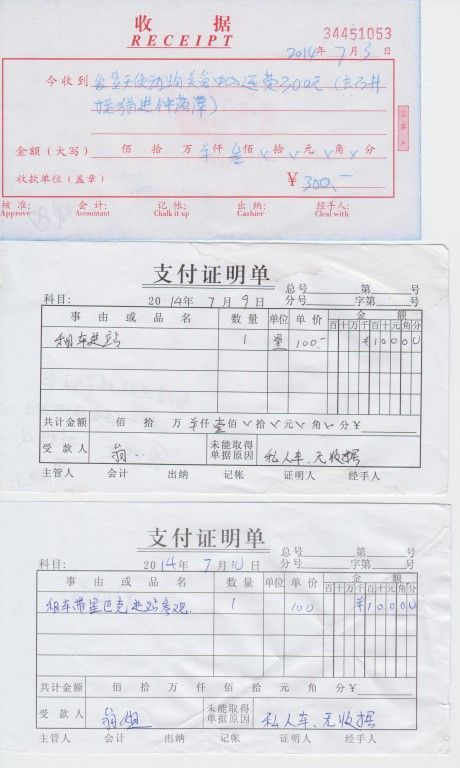 收 据
RECEIPT
34451053
2014年7月3日
今收到 天使动物关
运费300元
金额（大写） 佰 拾 万 仟 佰 拾 元 角 分
收款单位（盖章） ¥ 300.-
核准: 会计: 记帐: 出纳: 经手人:
Approve Accountant Chalk it up Cashier Cleal with
支付证明单
总号 第 号
科目: 2014年7月9日 分号 字第 号
事由或品名 数量 单位 单价 金额
百十万千百十元角分
租车进站 1 100- ¥10000
共计金额 佰 拾 万 仟 壹佰 拾 元 角 分¥
受款人 翁 未能取得单据原因 私人车、无收据
主管人 会计 出纳 记帐 证明人 经手人
支付证明单
总号 第 号
科目: 2014年7月10日 分号 字第 号
事由或品名 数量 单位 单价 金额
百十万千百十元角分
租车带星巴克进站参观 1 100 ¥10000
共计金额 佰 拾 万 仟 佰 拾 元 角 分¥
受款人 翁姐 未能取得单据原因 私人车、无收据
主管人 会计 出纳 记帐 证明人 经手人